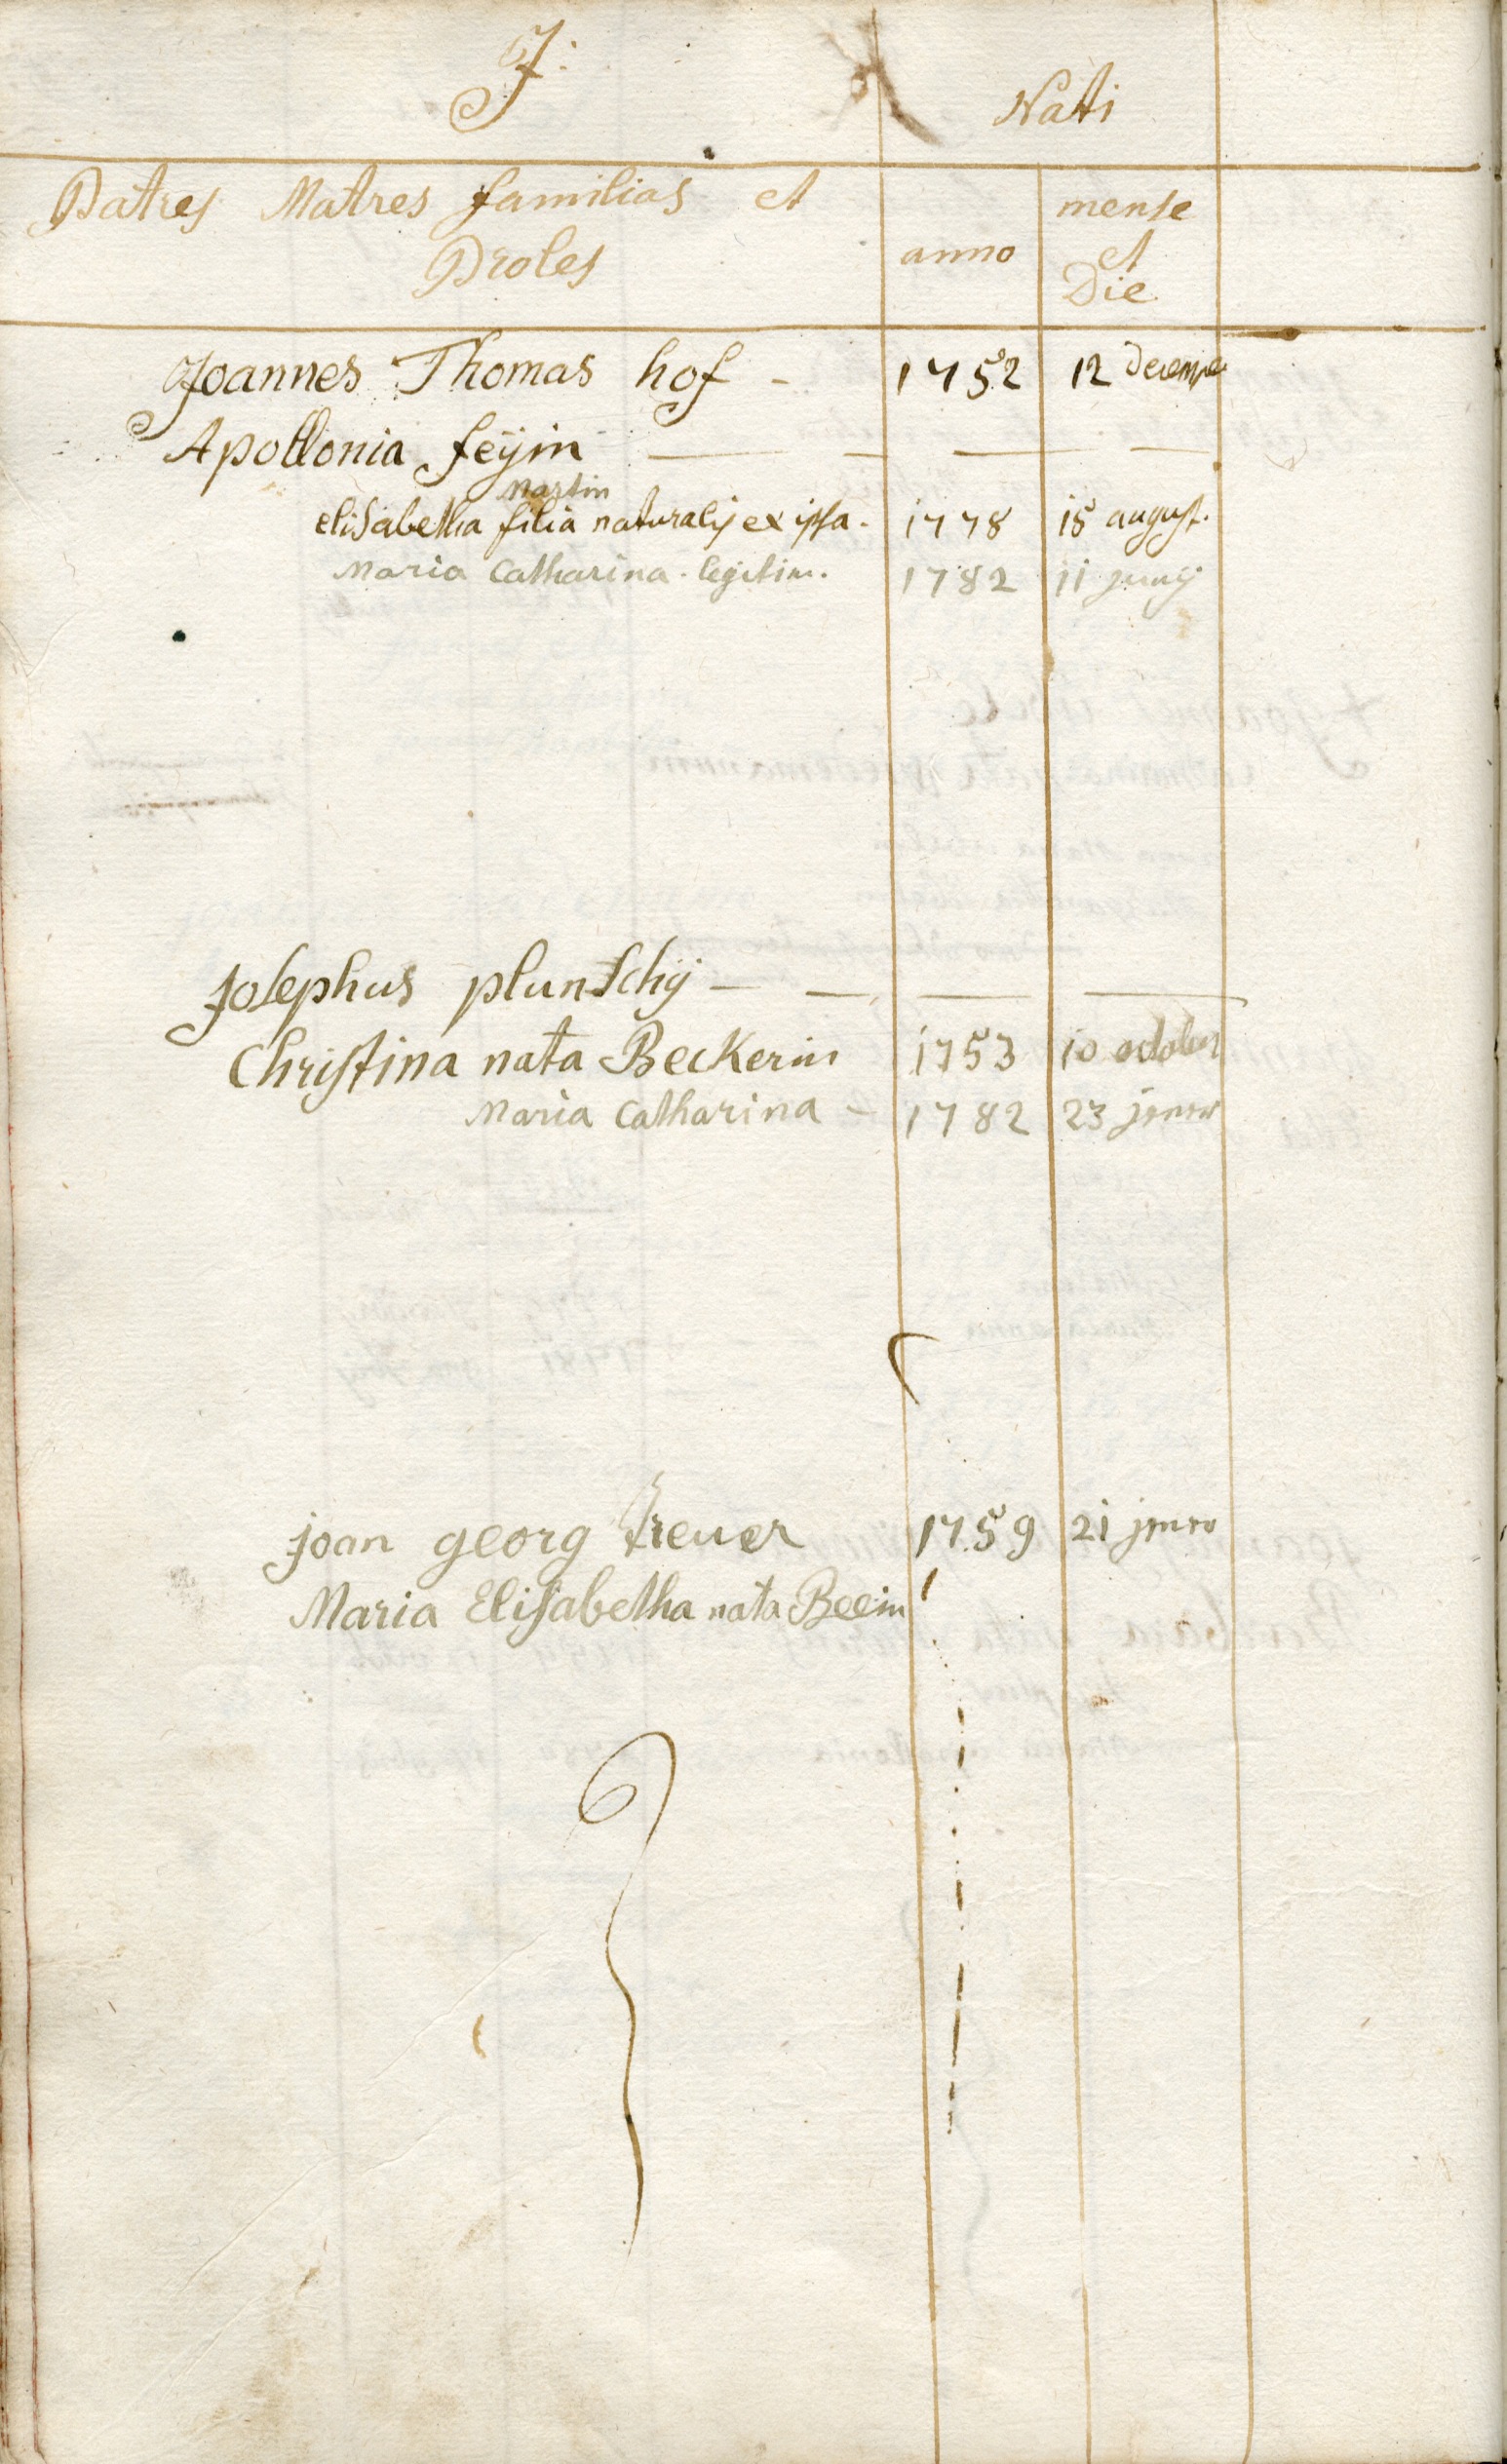 J:
Nati
Patres Matres familias et
Proles
anno
mense
et
Die
Joannes Thomas hof - 1752 12 decemb
Apollonia feÿin — — — —
Martin
elisabetha filia naturalis ex ipsa. 1778 15 august.
Maria Catharina. legitim. 1782 11 junÿ
Josephus pluntschÿ — — — —
Christina nata Beckerin 1753 10 octobr
Maria Catharina - 1782 23 jenner
joan georg treuer 1759 21 jenner
Maria Elisabetha nata Beein